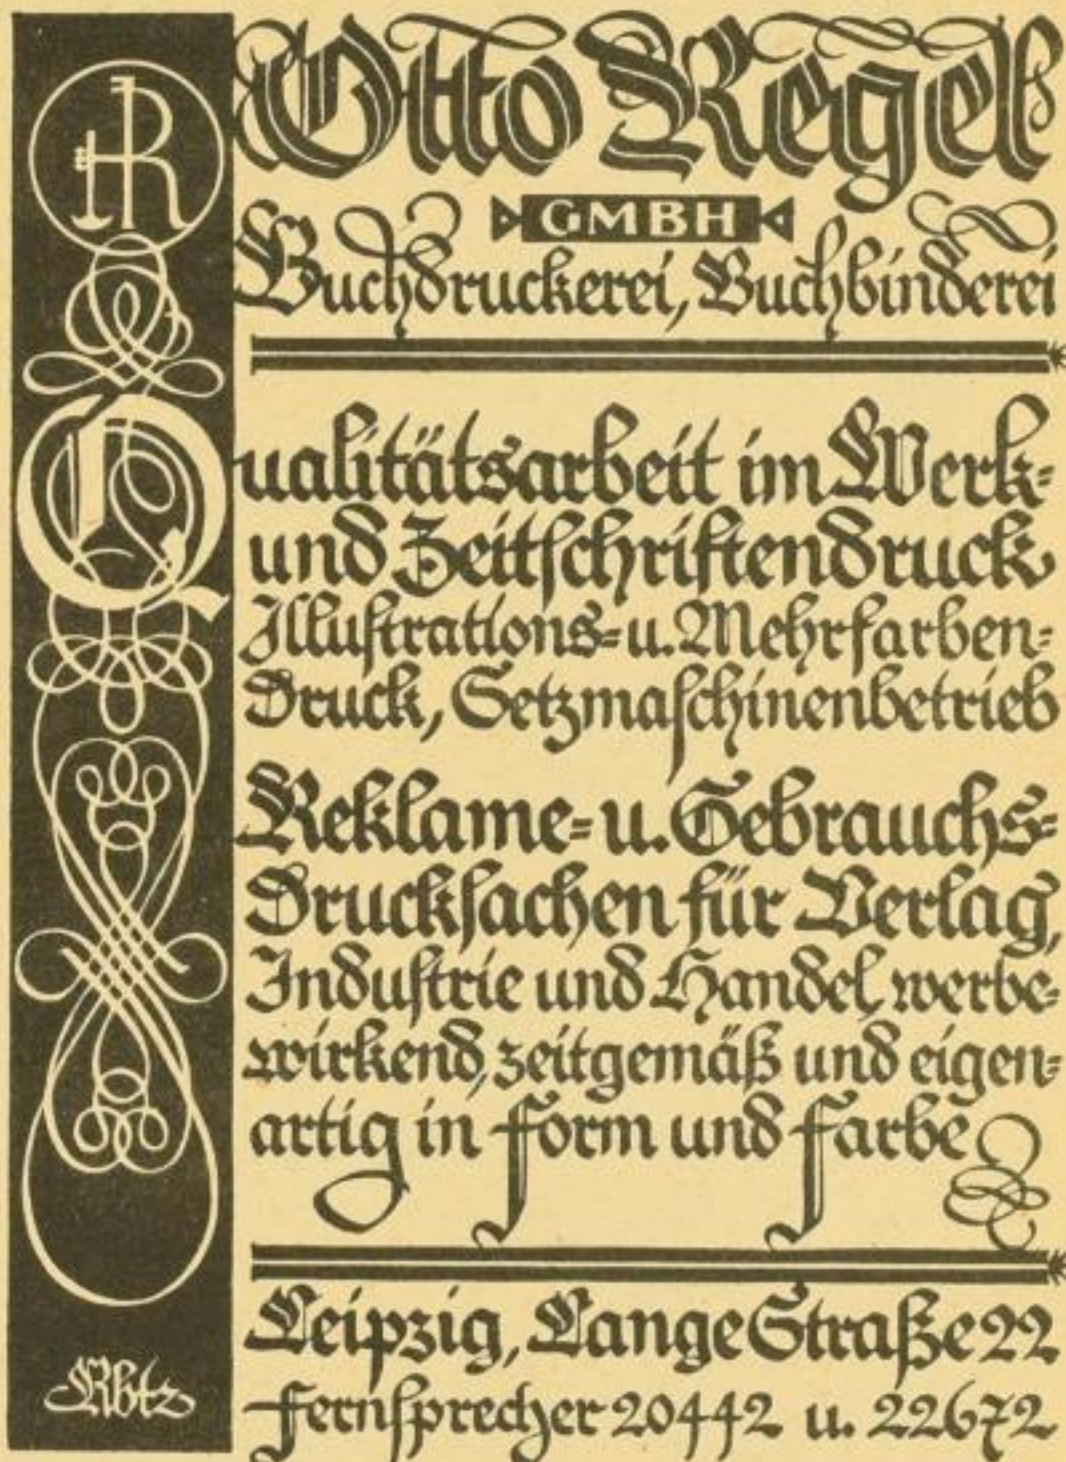 Otto Regel
GMBH
Buchdruckerei, Buchbinderei
Qualitätsarbeit im Werk-
und Zeitschriftendruck
Illustrations- u. Mehrfarben-
Druck, Setzmaschinenbetrieb
Reklame- u. Gebrauchs-
Drucksachen für Verlag,
Industrie und Handel, werbe-
wirkend, zeitgemäß und eigen-
artig in Form und Farbe
Leipzig, Lange Straße 22
Fernsprecher 20442 u. 22672